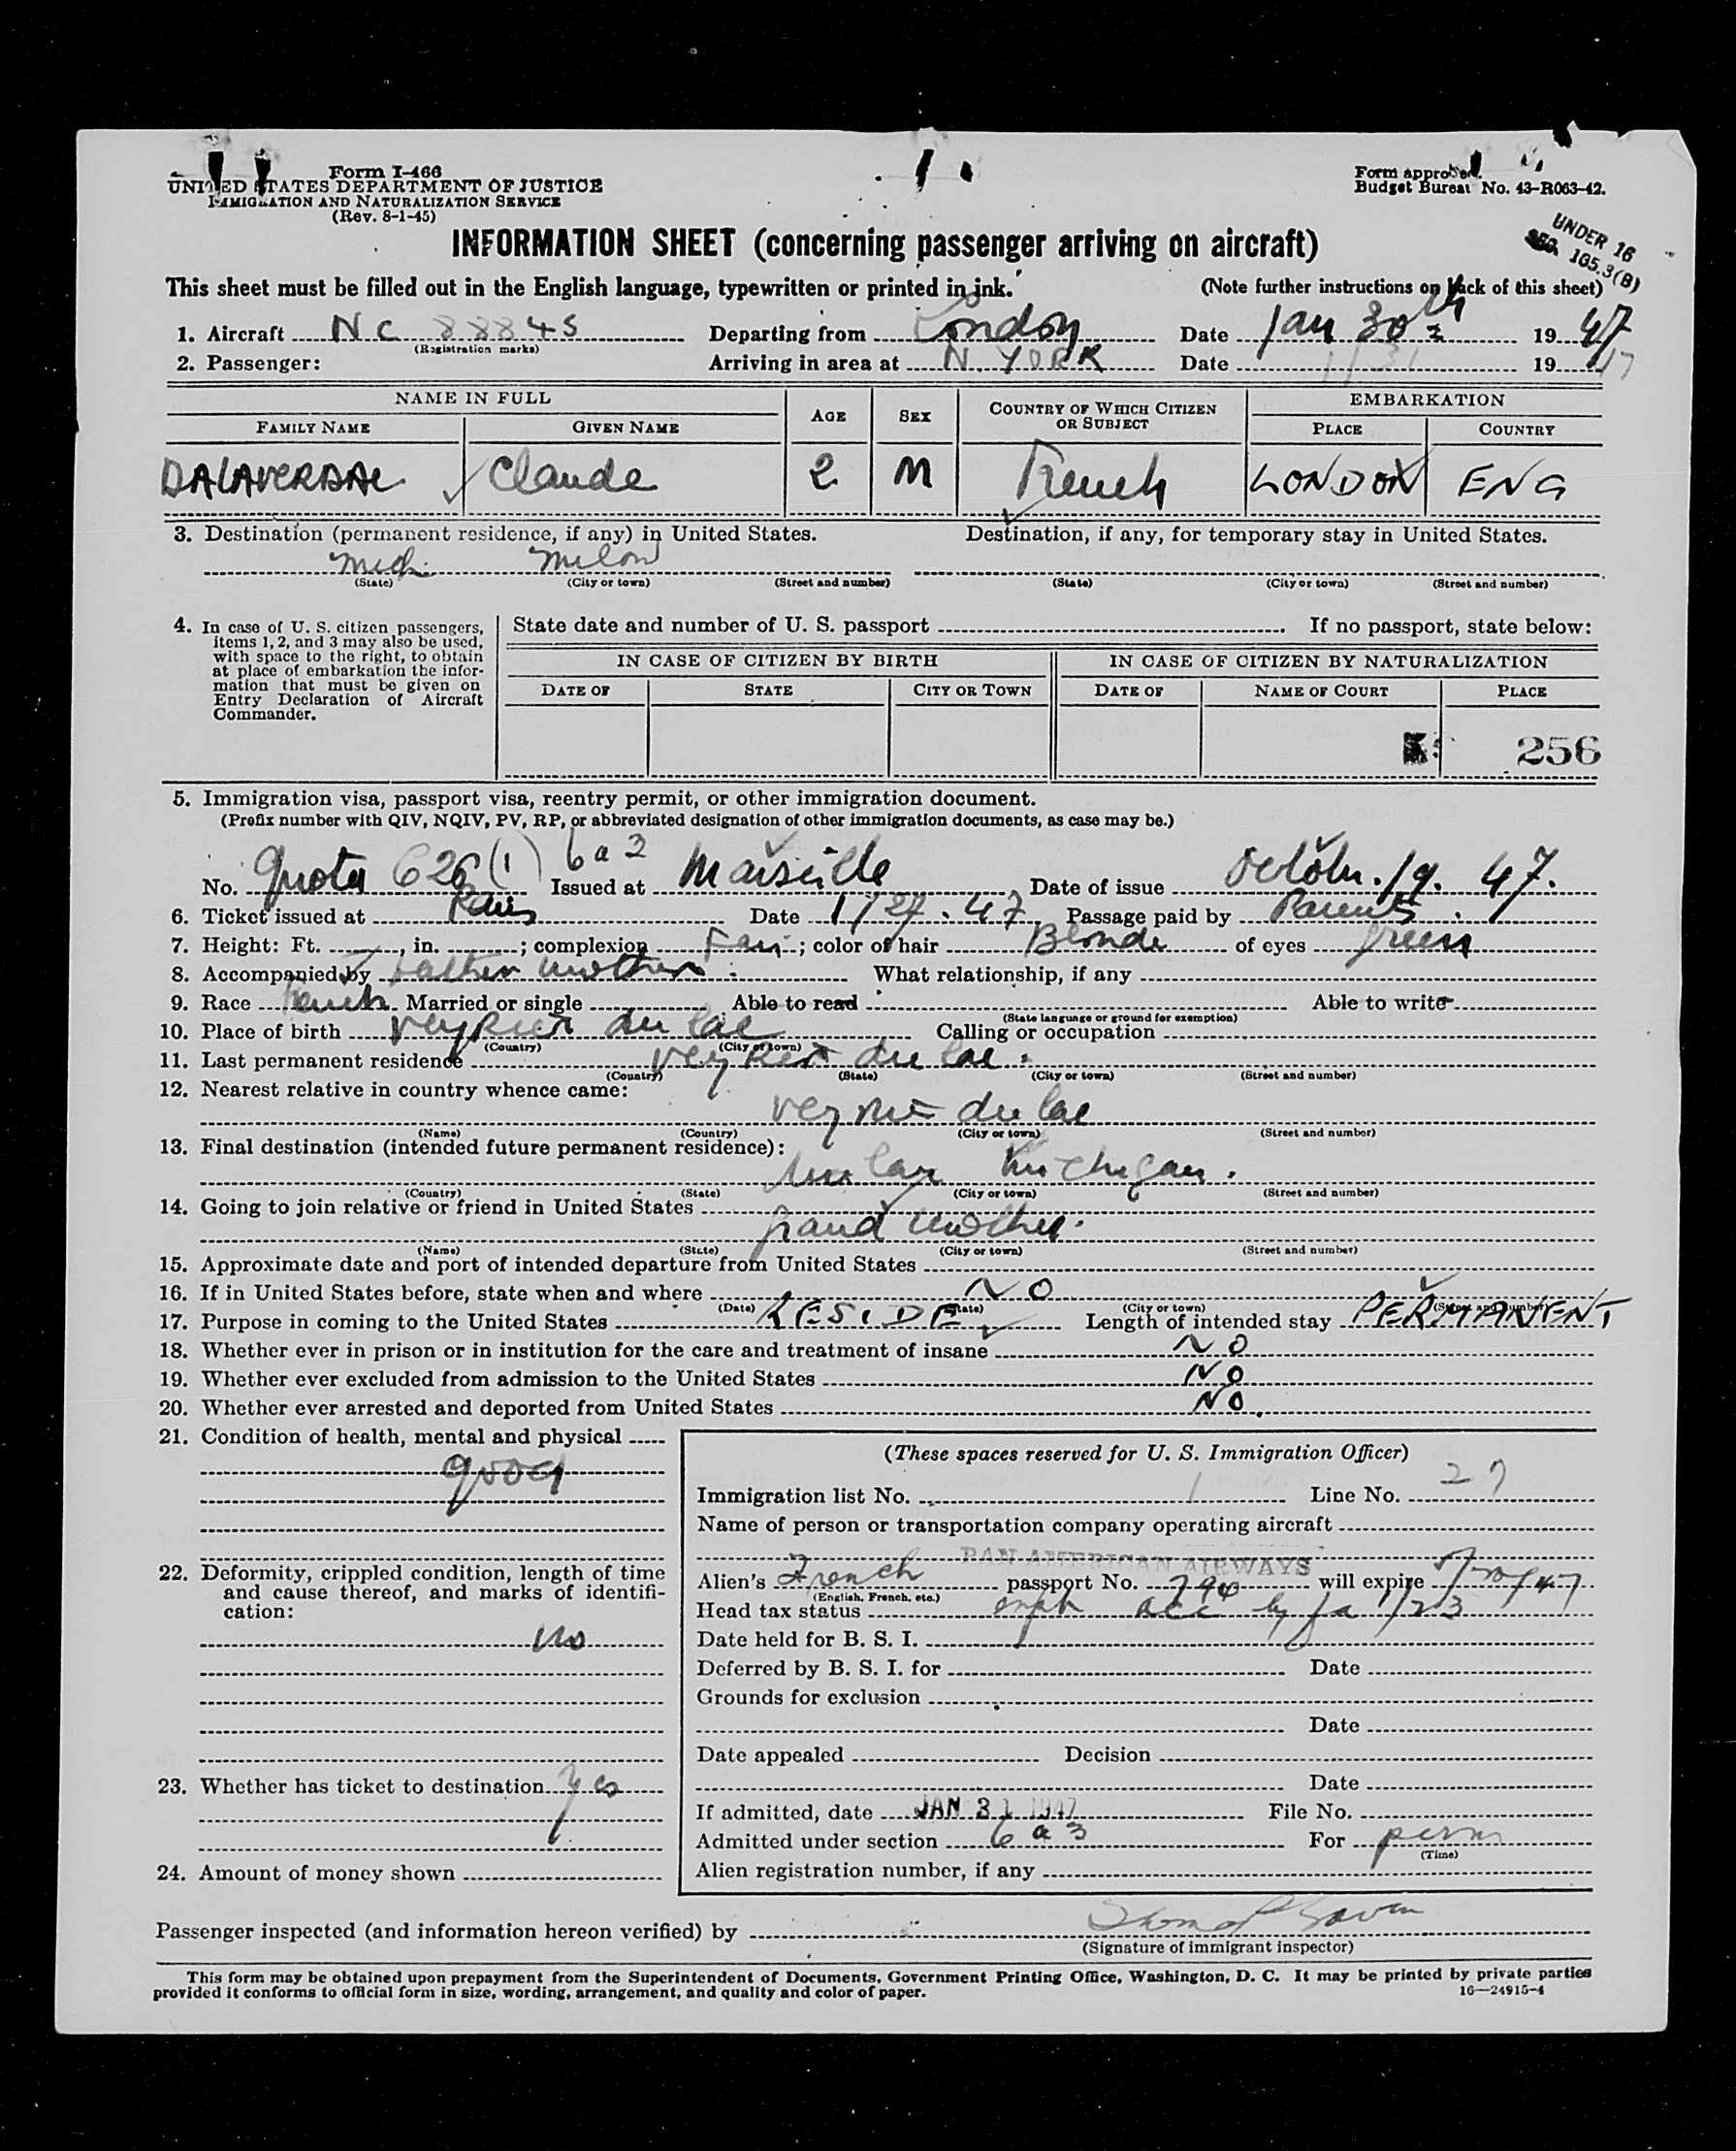 Form I-466
UNITED STATES DEPARTMENT OF JUSTICE
IMMIGRATION AND NATURALIZATION SERVICE
(Rev. 8-1-45)
Form approved.
Budget Bureau No. 43-R063-42.
UNDER 16
SEC. 165.3(B)
INFORMATION SHEET (concerning passenger arriving on aircraft)
This sheet must be filled out in the English language, typewritten or printed in ink. (Note further instructions on back of this sheet)
1. Aircraft NC 88845 Departing from London Date Jan 30th 1947
(Registration marks)
2. Passenger: Arriving in area at N. YORK Date 1/31 1947
NAME IN FULL AGE SEX COUNTRY OF WHICH CITIZEN OR SUBJECT EMBARKATION
FAMILY NAME GIVEN NAME PLACE COUNTRY
DALAVERDAC Claude 2 M French LONDON ENG
3. Destination (permanent residence, if any) in United States. Destination, if any, for temporary stay in United States.
Mich. Milan
(State) (City or town) (Street and number) (State) (City or town) (Street and number)
4. In case of U. S. citizen passengers, items 1, 2, and 3 may also be used, with space to the right, to obtain at place of embarkation the information that must be given on Entry Declaration of Aircraft Commander.
State date and number of U. S. passport If no passport, state below:
IN CASE OF CITIZEN BY BIRTH IN CASE OF CITIZEN BY NATURALIZATION
DATE OF STATE CITY OR TOWN DATE OF NAME OF COURT PLACE
256
5. Immigration visa, passport visa, reentry permit, or other immigration document.
(Prefix number with QIV, NQIV, PV, RP, or abbreviated designation of other immigration documents, as case may be.)
No. Quota 626(1) 6a3 Issued at Marseille Date of issue October. 19. 47.
6. Ticket issued at Paris Date 1/27.47 Passage paid by Parents.
7. Height: Ft. , in. ; complexion Fair; color of hair Blonde of eyes green
8. Accompanied by Father mother What relationship, if any
9. Race French Married or single Able to read Able to write
(State language or ground for exemption)
10. Place of birth Veyrier du lac Calling or occupation
(Country) (City or town)
11. Last permanent residence Veyrier du lac.
(Country) (State) (City or town) (Street and number)
12. Nearest relative in country whence came:
Veyrier du lac
(Name) (Country) (City or town) (Street and number)
13. Final destination (intended future permanent residence):
Milan Michigan.
(Country) (State) (City or town) (Street and number)
14. Going to join relative or friend in United States
Grand mother.
(Name) (State) (City or town) (Street and number)
15. Approximate date and port of intended departure from United States
16. If in United States before, state when and where NO
(Date) (State) (City or town) (Street and number)
17. Purpose in coming to the United States RESIDE Length of intended stay PERMANENT
18. Whether ever in prison or in institution for the care and treatment of insane NO
19. Whether ever excluded from admission to the United States NO
20. Whether ever arrested and deported from United States NO.
21. Condition of health, mental and physical
good
22. Deformity, crippled condition, length of time and cause thereof, and marks of identification:
no
23. Whether has ticket to destination yes
24. Amount of money shown
(These spaces reserved for U. S. Immigration Officer)
Immigration list No. 1 Line No. 27
Name of person or transportation company operating aircraft
PAN AMERICAN AIRWAYS
Alien's French passport No. 794 will expire
(English, French, etc.)
Head tax status acc by fa 1/23
Date held for B. S. I.
Deferred by B. S. I. for Date
Grounds for exclusion
Date
Date appealed Decision
Date
If admitted, date JAN 31 1947 File No.
Admitted under section 6 a 3 For perm
(Time)
Alien registration number, if any
Passenger inspected (and information hereon verified) by
(Signature of immigrant inspector)
This form may be obtained upon prepayment from the Superintendent of Documents, Government Printing Office, Washington, D. C. It may be printed by private parties
provided it conforms to official form in size, wording, arrangement, and quality and color of paper. 16—24915-4